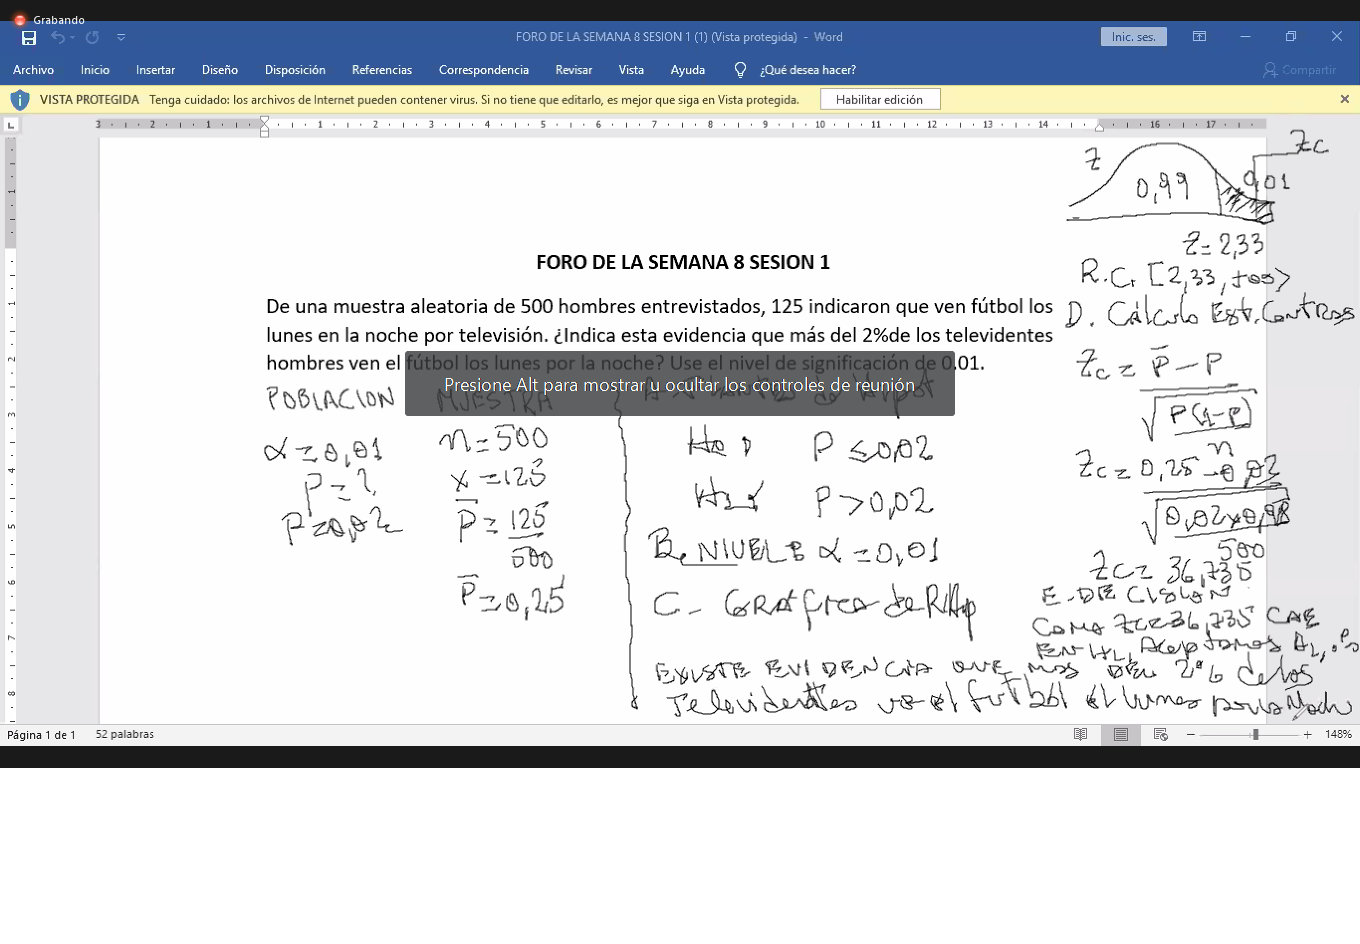 Grabando
FORO DE LA SEMANA 8 SESION 1 (1) (Vista protegida) - Word
Inic. ses.
Archivo Inicio Insertar Diseño Disposición Referencias Correspondencia Revisar Vista Ayuda ¿Qué desea hacer? Compartir
VISTA PROTEGIDA Tenga cuidado: los archivos de Internet pueden contener virus. Si no tiene que editarlo, es mejor que siga en Vista protegida. Habilitar edición
3 2 1 1 2 3 4 5 6 7 8 9 10 11 12 13 14 16 17
FORO DE LA SEMANA 8 SESION 1
De una muestra aleatoria de 500 hombres entrevistados, 125 indicaron que ven fútbol los
lunes en la noche por televisión. ¿Indica esta evidencia que más del 2%de los televidentes
hombres ven el fútbol los lunes por la noche? Use el nivel de significación de 0.01.
Presione Alt para mostrar u ocultar los controles de reunión
POBLACION
α = 0,01
P = ?
P = 0,02
MUESTRA
n = 500
x = 125
P̅ = 125
500
P̅ = 0,25
Ho: P ≤ 0,02
H1: P > 0,02
B. NIVEL α = 0,01
C. Gráfica de
Z
Zc
0,99
0,01
Z = 2,33
R.C. [2,33, +∞>
D. Cálculo Est. Contras
Zc = P̅ - P
√ P(1-P)
n
Zc = 0,25 - 0,02
√ 0,02x0,98
500
Zc = 36,735
E. DECISION
Como Zc = 36,735 CAE
EN H1, Aceptamos H1,
EXISTE EVIDENCIA QUE MAS DEL 2% de los
Televidentes ve el futbol el lunes por la Noche
Página 1 de 1 52 palabras 148%